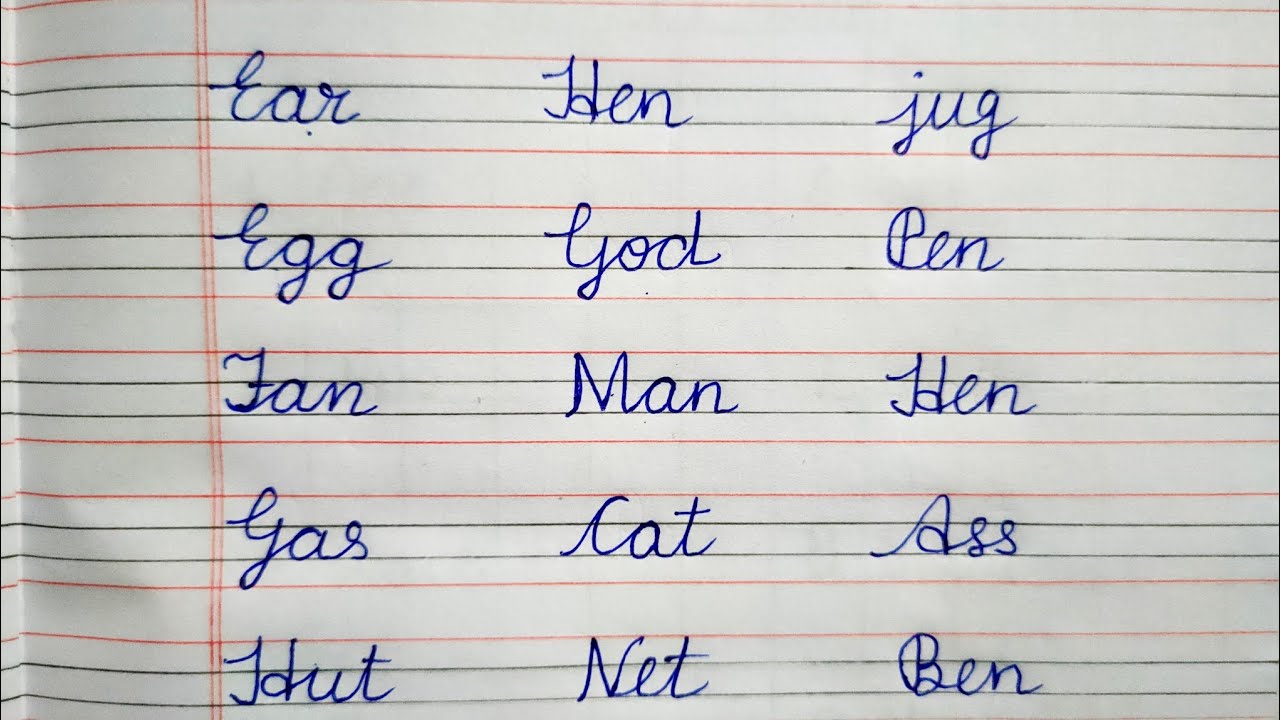 Ear Hen jug
Egg God Pen
Fan Man Hen
Gas Cat Ass
Hut Net Ben